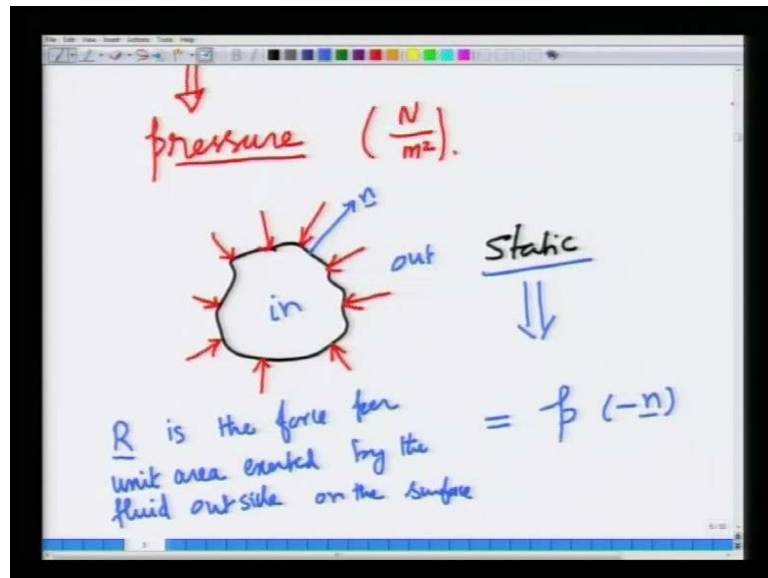 File Edit View Insert Actions Tools Help
pressure (N/m²).
n
out static
in
R is the force per = p (-n)
unit area exerted by the
fluid outside on the surface